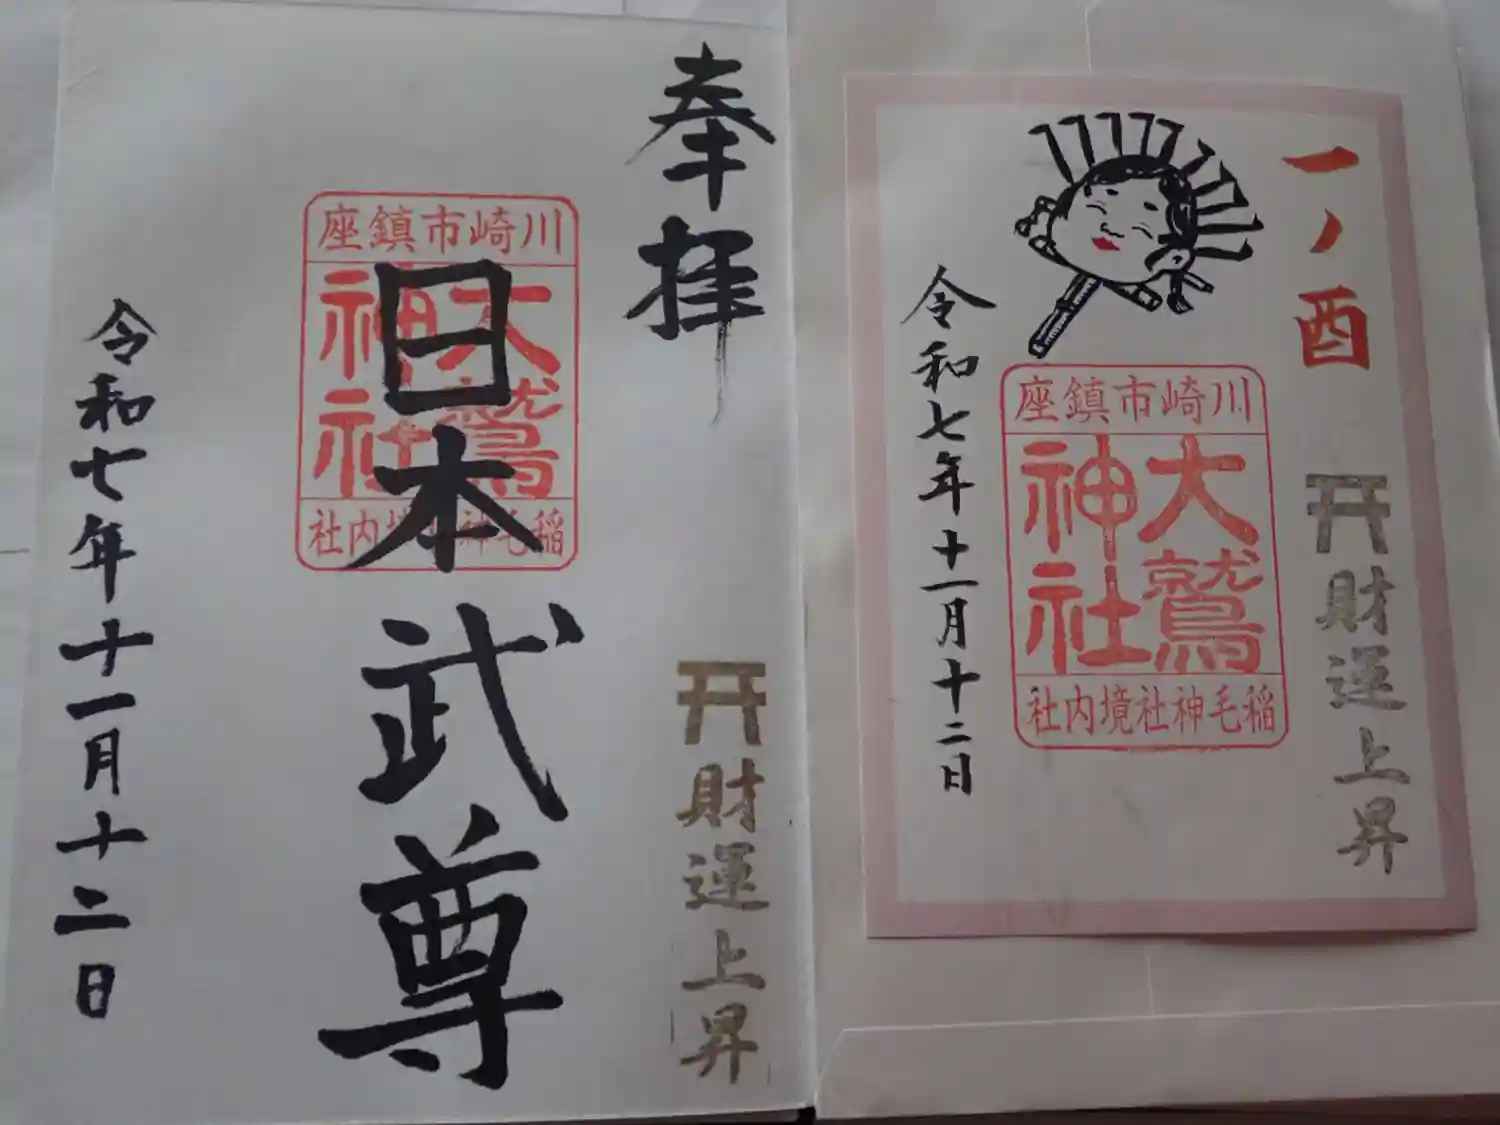 奉拝
川崎市鎮座
大鷲
神社
稲毛神社境内社
日本武尊
財運上昇
令和七年十一月十二日
一ノ酉
川崎市鎮座
大鷲
神社
稲毛神社境内社
財運上昇
令和七年十一月十二日